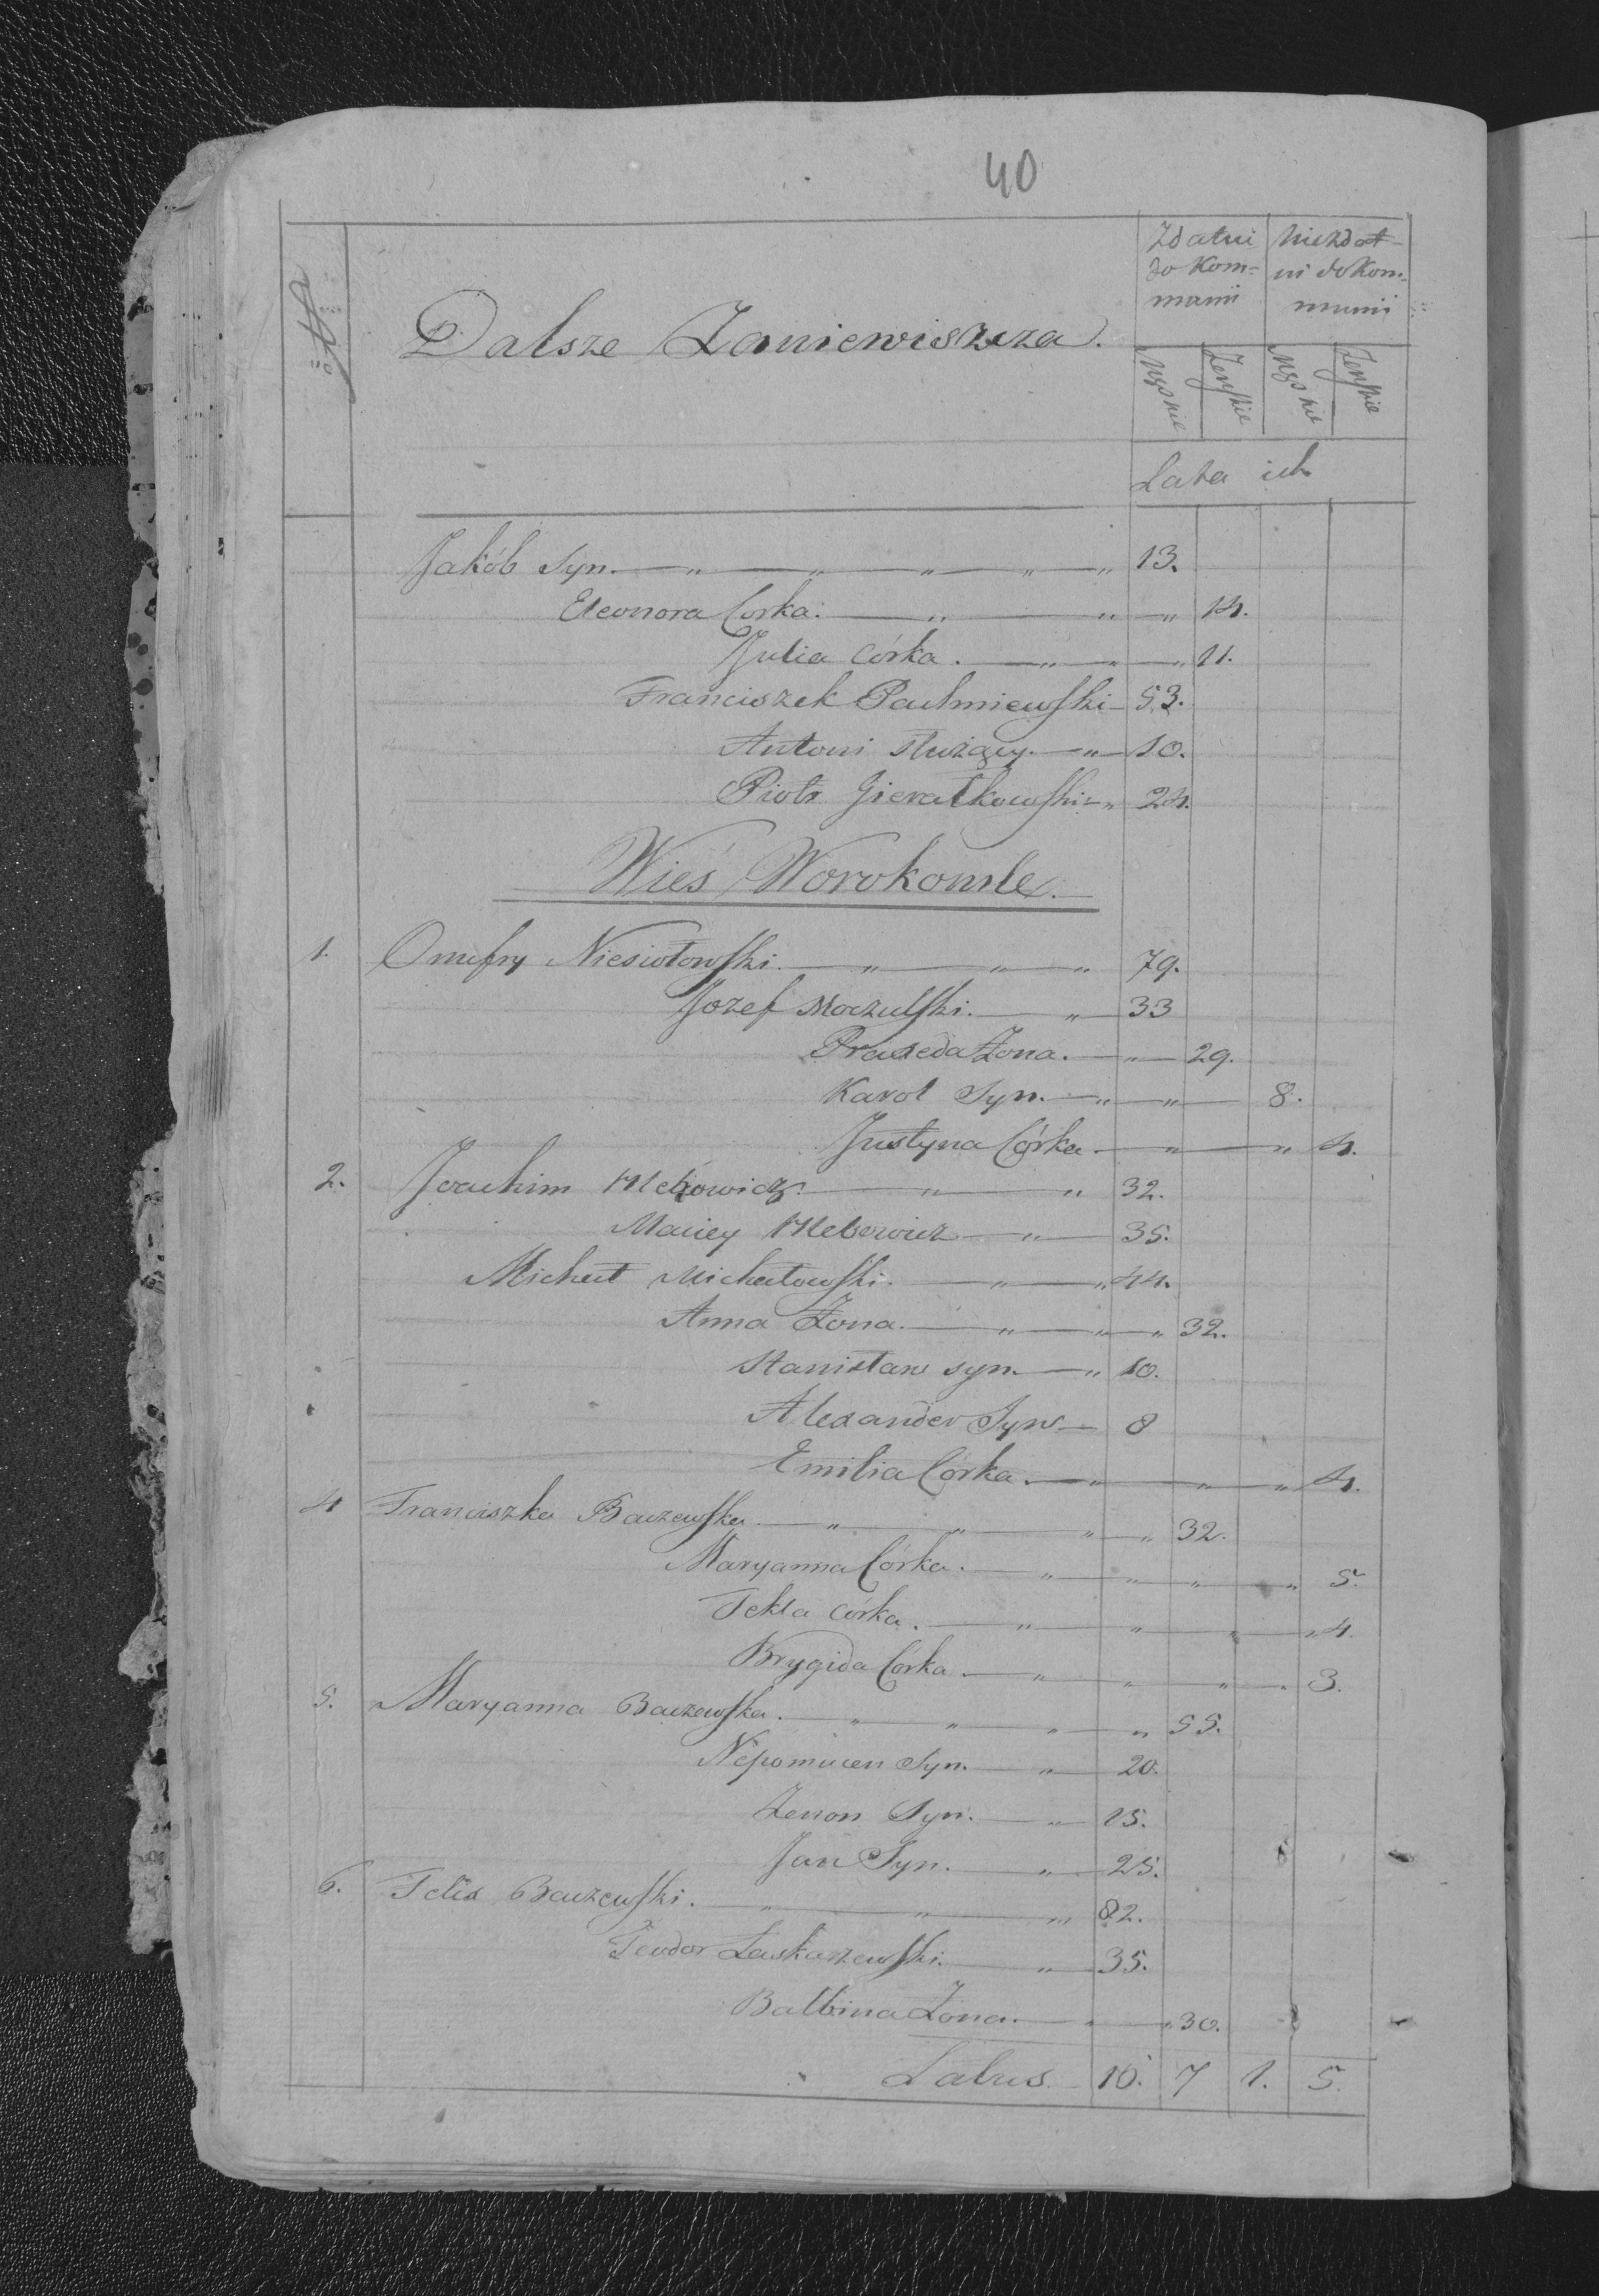 40
Zdatni do Kom=munii
niezdat-ni do Kom-munii
Dalsze Zaniewiszcza.
Męskie Żeńskie Męskie Żeńskie
Lata ich
Jakób Syn. 13.
Eleonora Córka. 14.
Julia Córka. 11.
Franciszek 53.
Antoni służący. 10.
Piotr Gierałkowski 24.
Wieś Worokomle.
1. Onufry Niesiołowski. 79.
Jozef Moczulski. 33
Praxeda Żona. 29.
Karol Syn. 8.
Justyna Córka. 4.
2. Joachim Hlebowicz. 32.
Maciey Hlebowicz 35.
Michał Michałowski. 44.
Anna Żona. 32.
Stanisław syn. 10.
Alexander Syn 8
Emilia Córka. 4.
4 Franciszka Baczewska. 32.
Maryanna Córka. 5.
Tekla Córka. 4.
Brygida Córka. 3.
5. Maryanna Baczewska. 55.
Nepomucen Syn. 20.
Zenon Syn. 15.
Jan Syn. 25.
6. Felix Baczewski. 82.
Teodor Laskarzewski. 35.
Balbina Żona. 30.
Latus 16. 7 1. 5.